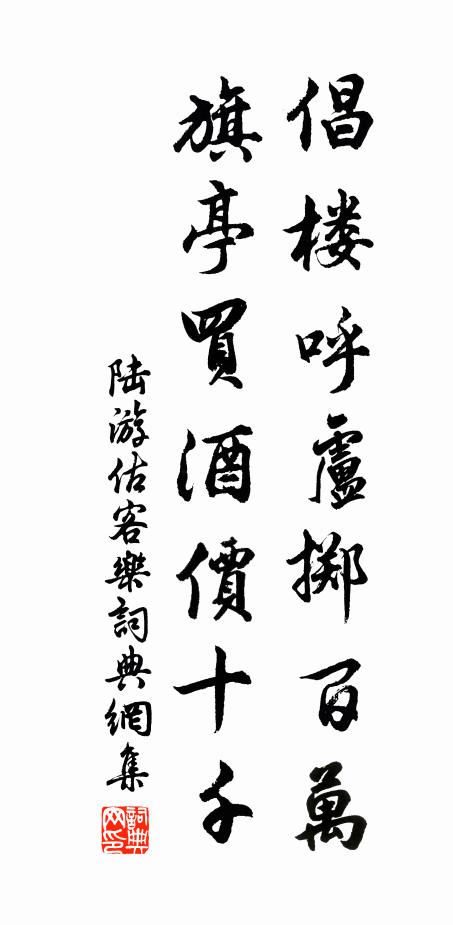 倡楼呼盧掷百萬
旗亭買酒價十千
陆游估客樂詞典網集
詞典网印